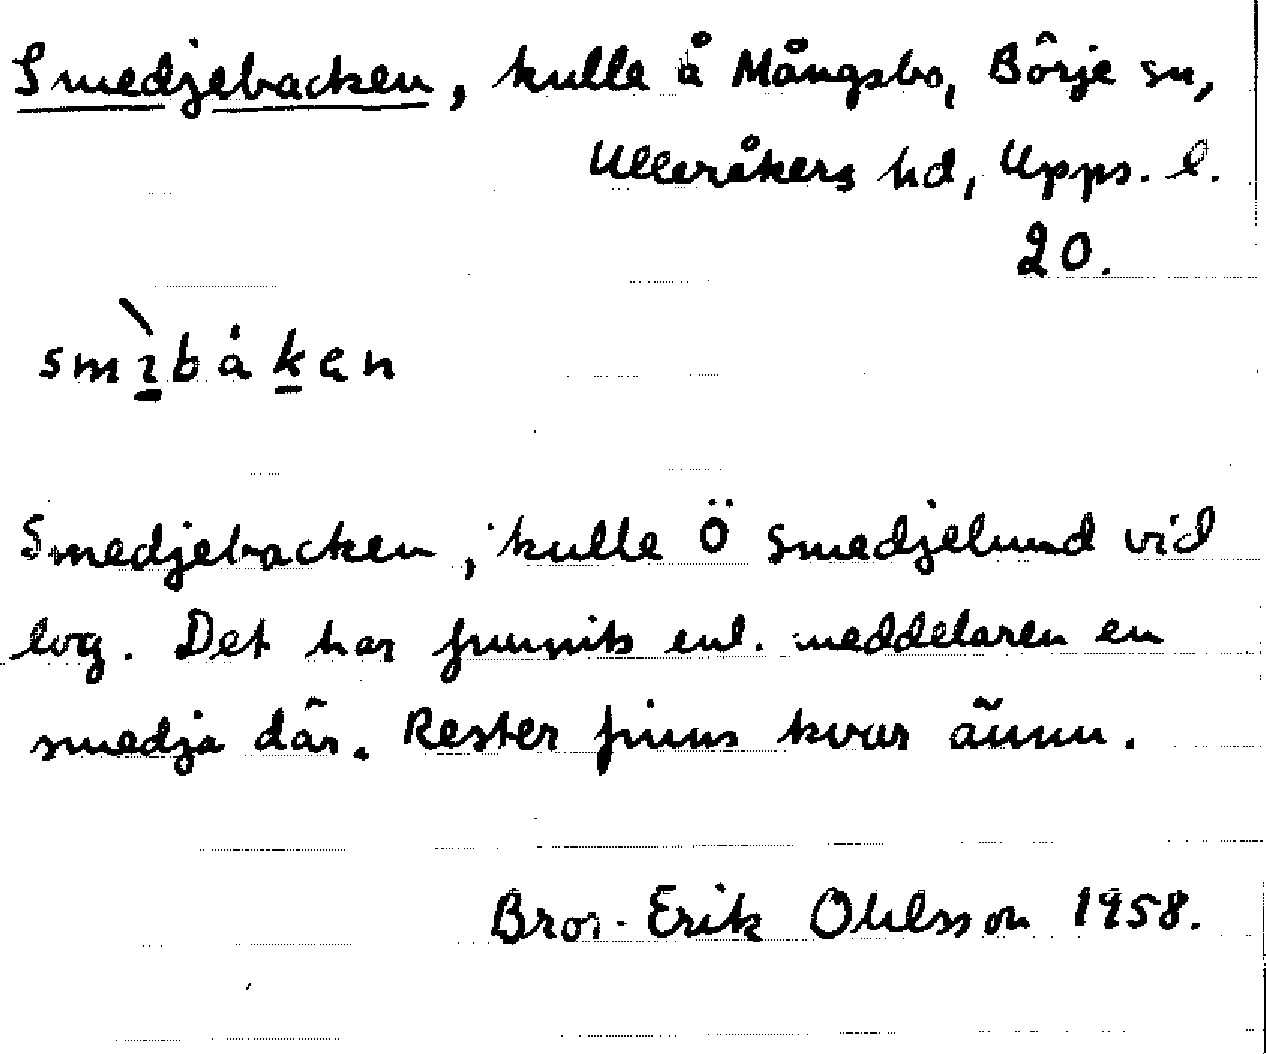 Smedjebacken, kulle å Mångsbo, Börje sn,
Ulleråkers hd, Upps. l.
20.
smìbåken
Smedjebacken, kulle Ö Smedjelund vid
lvg. Det har funnits enl. meddelaren en
smedja där. Rester finns kvar ännu.
Bror-Erik Ohlsson 1958.